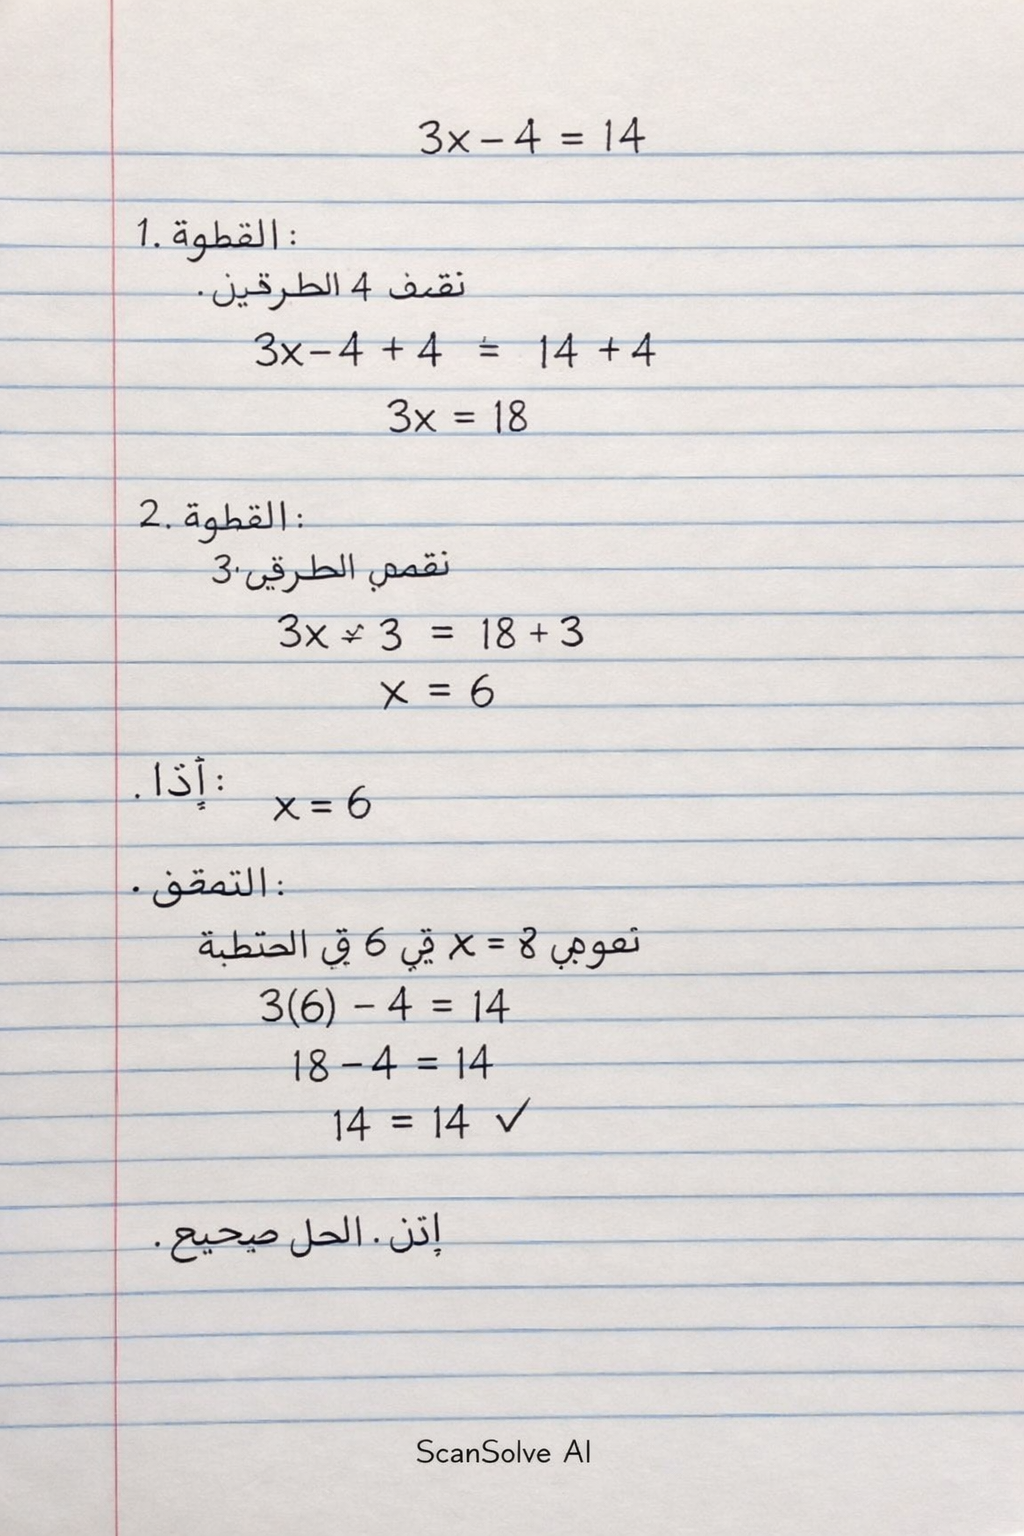 3x - 4 = 14
1. القطوة:
نقىف 4 الطرقين.
3x - 4 + 4 = 14 + 4
3x = 18
2. القطوة:
نقمص الطرقي 3.
3x 3 = 18 + 3
x = 6
. إٍذا:
x = 6
• التمقق:
x = 8 قي 6 ق الحتطبة
3(6) - 4 = 14
18 - 4 = 14
14 = 14 ✓
إتن. الحل صيحيح.
ScanSolve AI